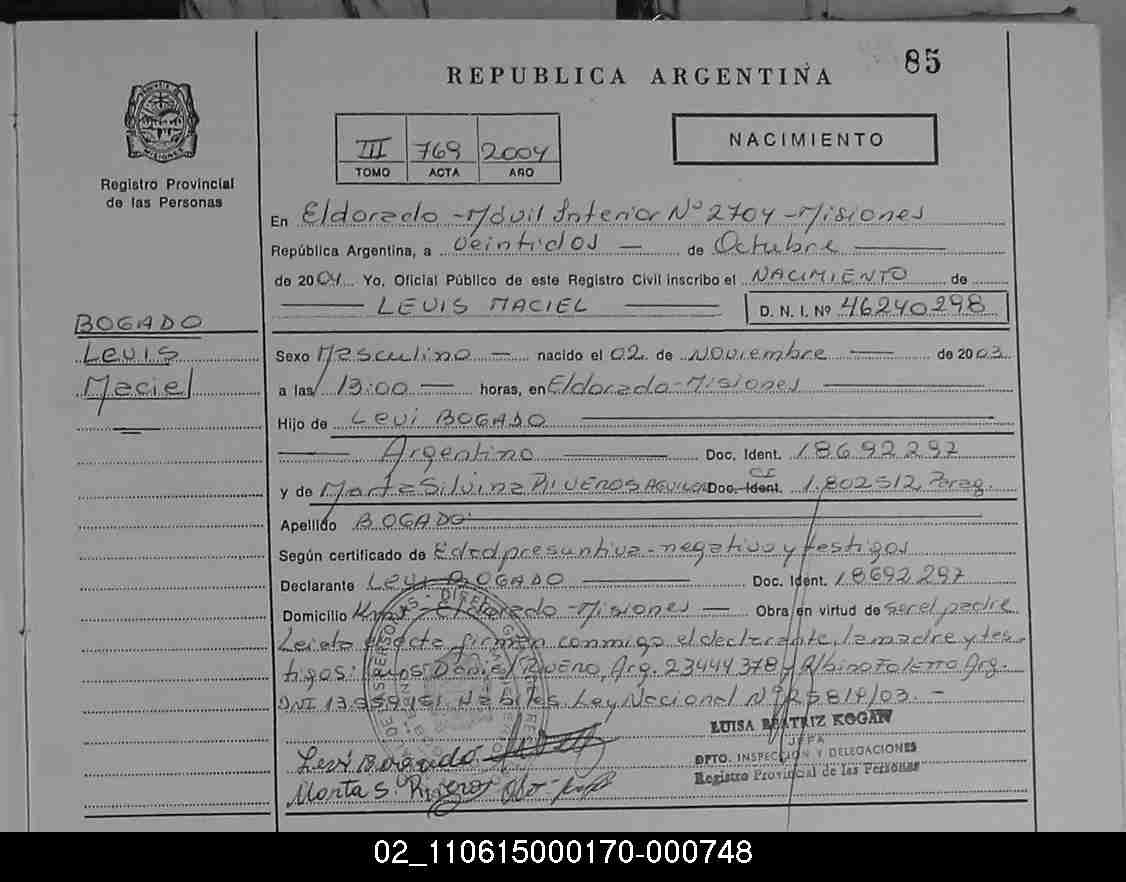 85
REPUBLICA ARGENTINA
PROVINCIA DE MISIONES
Registro Provincial
de las Personas
III 769 2004
TOMO ACTA AÑO
NACIMIENTO
En Eldorado - Móvil Interior Nº 2704 - Misiones
República Argentina, a veintidos — de Octubre
de 2004 Yo, Oficial Público de este Registro Civil inscribo el NACIMIENTO de
LEVIS MACIEL D. N. I. Nº 46240298
BOGADO
Levis
Maciel
Sexo Masculino — nacido el 02 de Noviembre — de 2003
a las 13:00 — horas, en Eldorado - Misiones
Hijo de Levi BOGADO
Argentino Doc. Ident. 18692297
y de Marta Silvina RIVEROS AGUILAR Doc. Ident. CI 1.802512 Parag.
Apellido BOGADO
Según certificado de Edad presuntiva - negativo y testigos
Declarante Levi BOGADO Doc. Ident. 18692297
Domicilio Eldorado - Misiones — Obra en virtud de ser el padre
Leida el acta firman conmigo el declarante, la madre y tes-
tigos: Daniel RIVERO, Arg. 23444378 y Albino Arg.
DNI Ley Nacional Nº 25819/03. -
LUISA BEATRIZ KOGAN
JEFA
DPTO. INSPECCION Y DELEGACIONES
Registro Provincial de las Personas
Levi Bogado
Marta S Rivero
02_110615000170-000748